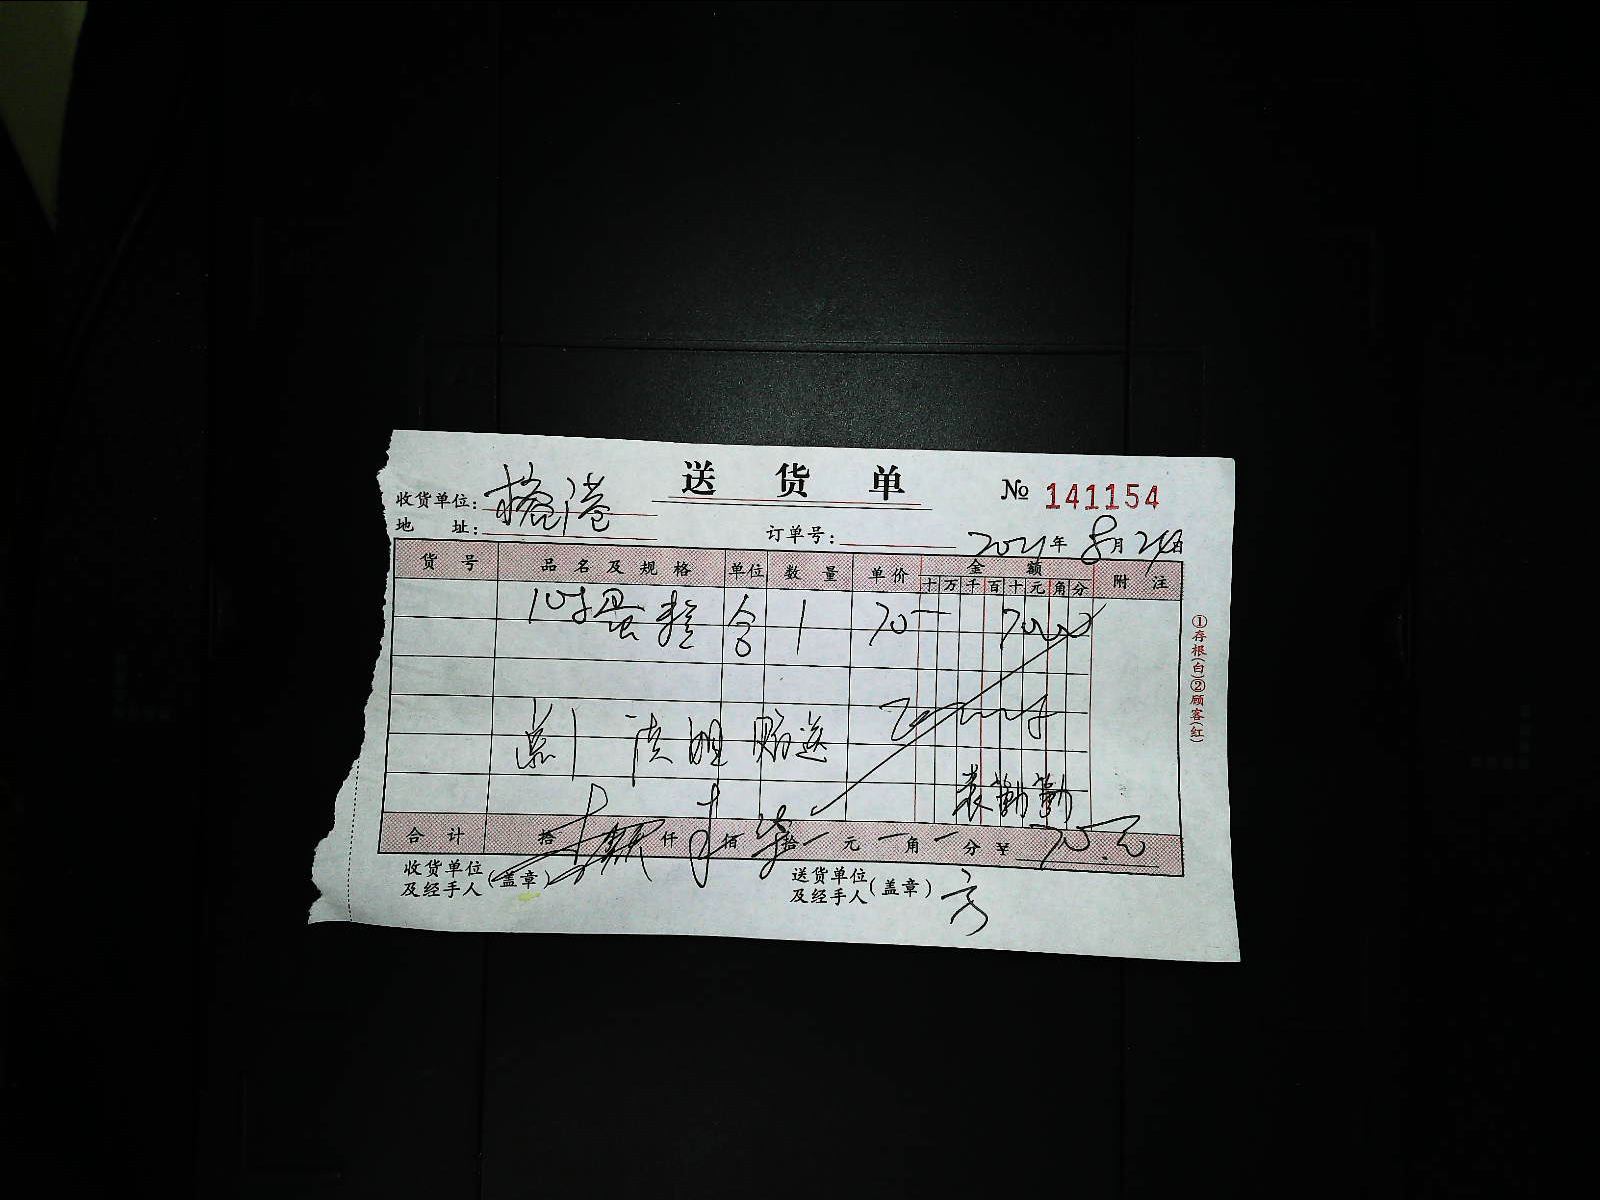 送 货 单
№ 141154
收货单位:
地 址: 订单号: 2021年 8月 24日
货 号 品 名 及 规 格 单位 数 量 单 价 金 额 附 注
十 万 千 百 十 元 角 分
10寸蛋糕 盒 1 70 70.00
赠送
袁勤勤
合 计 拾 仟 佰 柒拾 元 角 分 ¥ 70.00
收货单位
及经手人 (盖章)
送货单位
及经手人 (盖章)
①存根(白)②顾客(红)